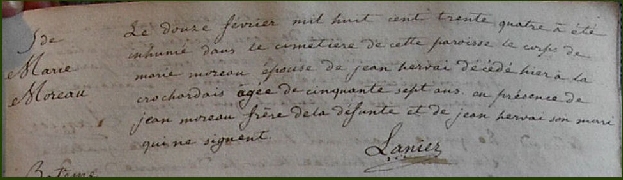 S de
Marie
Moreau
Le douze février mil huit cent trente quatre à été
inhumé dans le cimetière de cette paroisse le corps de
marie moreau épouse de jean hervai décédé hier à la
crochordais agée de cinquante sept ans. en présence de
jean moreau frère dela défante et de jean hervai son mari
qui ne signent
Lanier